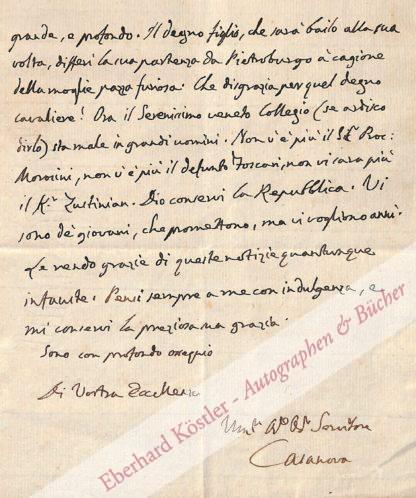 grande, e profondo. Il degno figlio, che sarà bailo alla sua
volta, differì la sua partenza da Pietroburgo à cagione
della moglie pazza furiosa. Che disgrazia per quel degno
cavaliere! Ora il Serenissimo veneto Collegio (se ardisco
dirlo) sta male in grandi uomini. Non v'è più il Sr. Proc:
Morosini, non v'è più il defunto Foscari, non vi sarà più
il Kr. Zustinian. Dio conservi la Repubblica. Vi
sono de' giovani, che promettono, ma vi vogliono anni.
Le rendo grazie di queste notizie quantunque
infauste. Pensi sempre a me con indulgenza, e
mi conservi la preziosa sua grazia.
Sono con profondo ossequio
Di Vostra Eccellenza
Servitore
Casanova
Eberhard Köstler - Autographen & Bücher